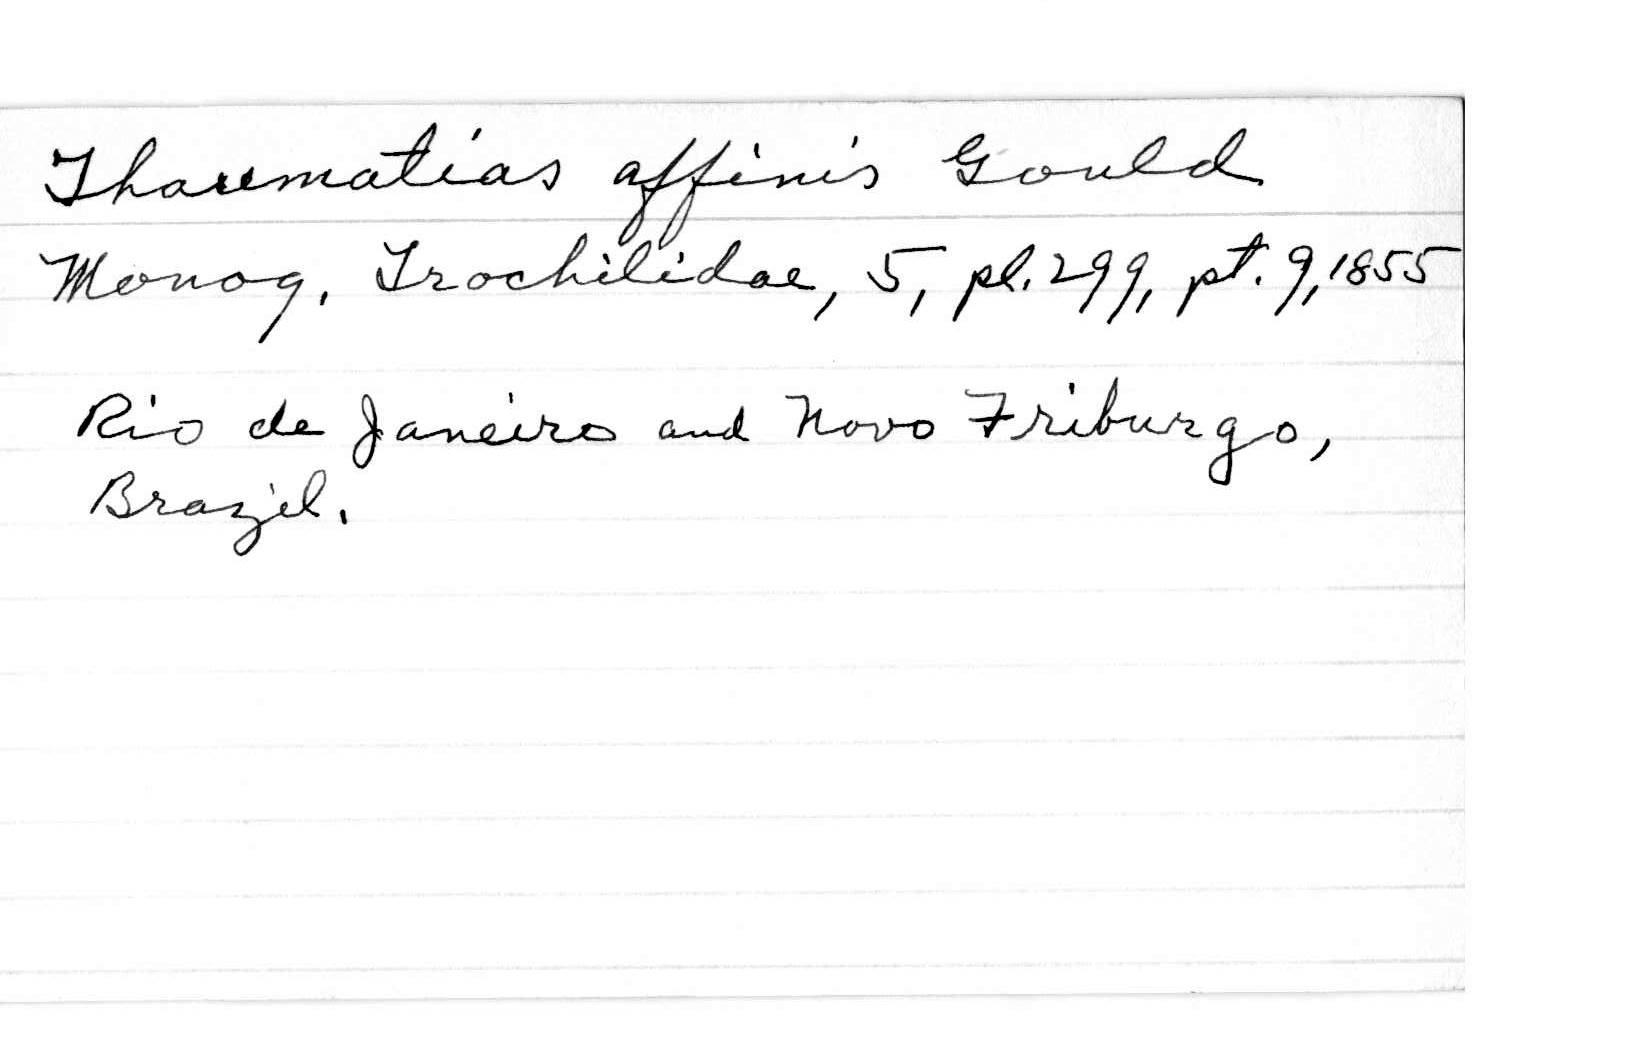 Thaumatias affinis Gould
Monog. Trochilidae, 5, pl. 299, pt. 9, 1855
Rio de Janeiro and Novo Friburgo,
Brazil.